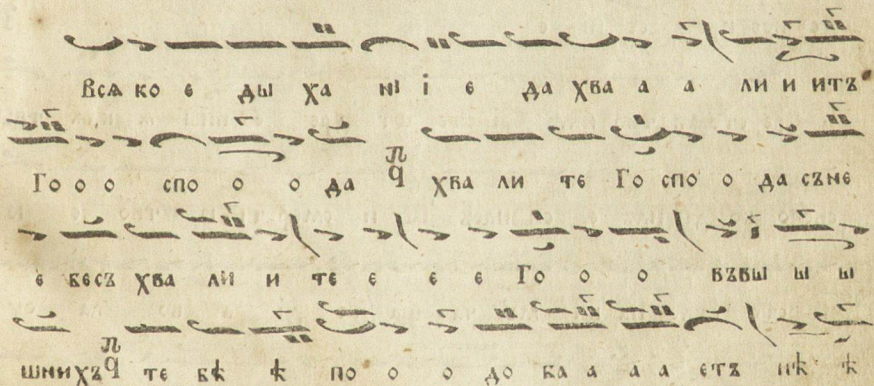 Всѧ ко е ды ха нї ї е да хва а а ли и итъ
Го о о спо о о да хва ли те Го спо о да съ не
е бесъ хва ли и те е е е Го о о о въвы ы ы
шнихъ те бѣ ѣ по о о до ба а а а етъ пѣ ѣ